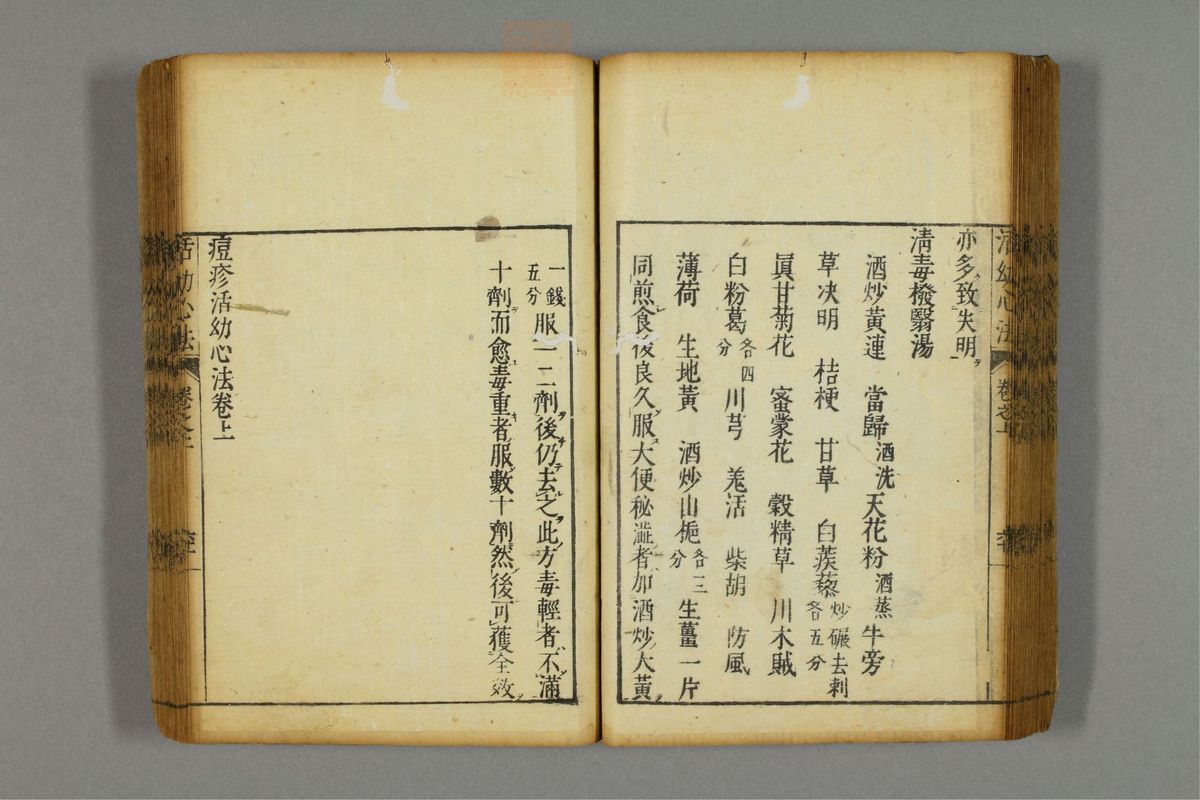 亦多致失明
淸毒撥翳湯
酒炒黃連 當歸酒洗 天花粉酒蒸 牛旁
草决明 桔梗 甘草 白蒺藜炒碾去刺各五分
眞甘菊花 蜜蒙花 穀精草 川木賊
白粉葛各四分 川芎 羗活 柴胡 防風
薄荷 生地黃 酒炒山梔各三分 生薑一片
同煎食後良久服大便秘澁者加酒炒大黃
活幼心法 卷之上
一錢五分服一二劑後仍去之此方毒輕者不滿
十劑而愈毒重者服數十劑然後可獲全效
痘疹活幼心法卷上
活幼心法 卷之上